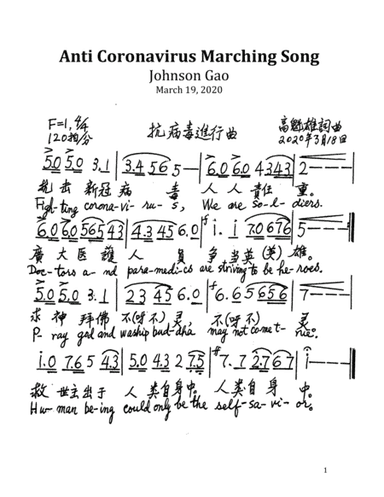 Anti Coronavirus Marching Song
Johnson Gao
March 19, 2020
F=1, 4/4
抗病毒進行曲
高魁雄詞曲
120拍/分
2020年3月18日
5.0 5.0 3.1 | 3.4 5 6 5 — | 6.0 6.0 4 3 4 3 | 2 — — —
抗击新冠病毒人人責任重。
Figh-ting corona-vi-ru-s, We are so-l-diers.
6.0 6.0 5 6 5 4 3 | 4.3 4 5 6.0 | #i. i 7.0 6 7 6 | 5 — — —
廣大医護人員争当英(英)雄。
Doc-tors a-nd para-medi-cs are striving to be he-roes.
5.0 5.0 3.1 | 2 3 4 5 6.0 | #6.6 5 6 5 6 | 7 — — —
求神拜佛不(呼不)灵不(呼不)灵
P-ray god and waship bud-dha may not come t-rue.
i.0 7.6 5 4.3 | 5.0 4.3 2 7.5 | #7.7 2.7 6 7 | i — — —
救世主出于人类自身中。人类自身中。
Hu-man be-ing could only be the self-sa-vi-or.
1